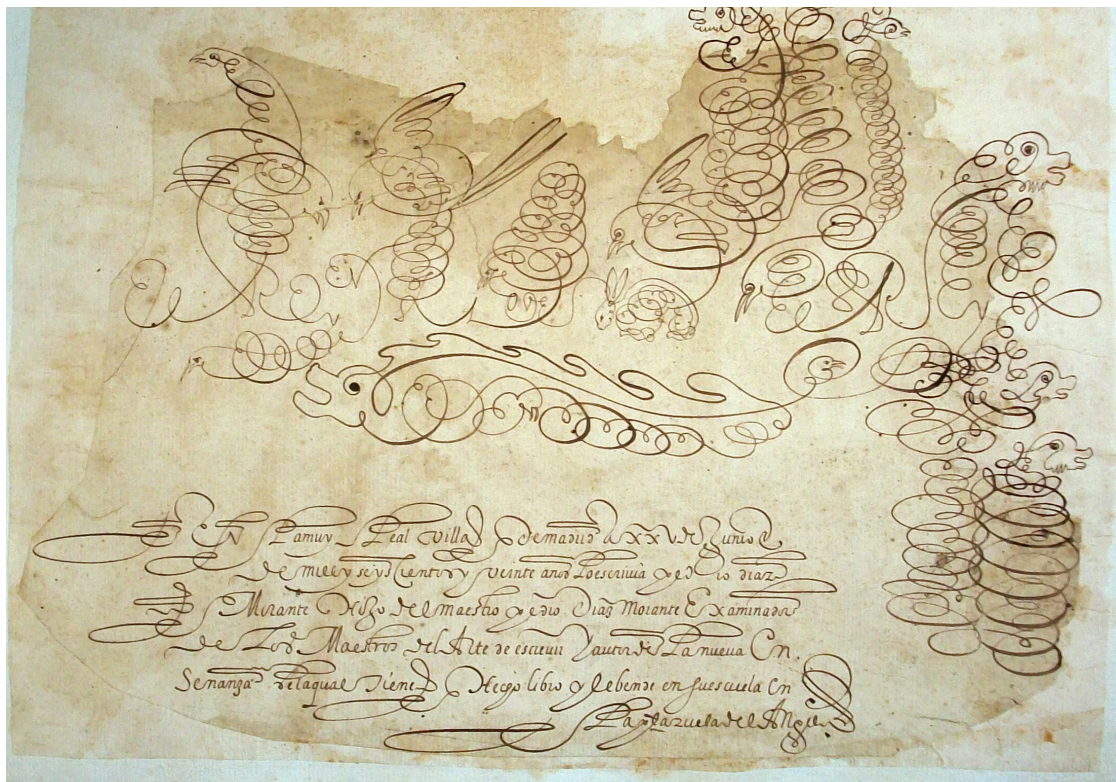 En la muy Real villa de madrid a xxv de Junio
de mill y seyscientos y veinte años lo escriuia pedro diaz
Morante Hijo del maestro pedro Diaz Morante Examinador
de Los Maestros del Arte de escriuir Y autor de La nueua En
Senanza de la qual Tiene Hecho libro y le bende en su escuela En
La plazuela del Angel